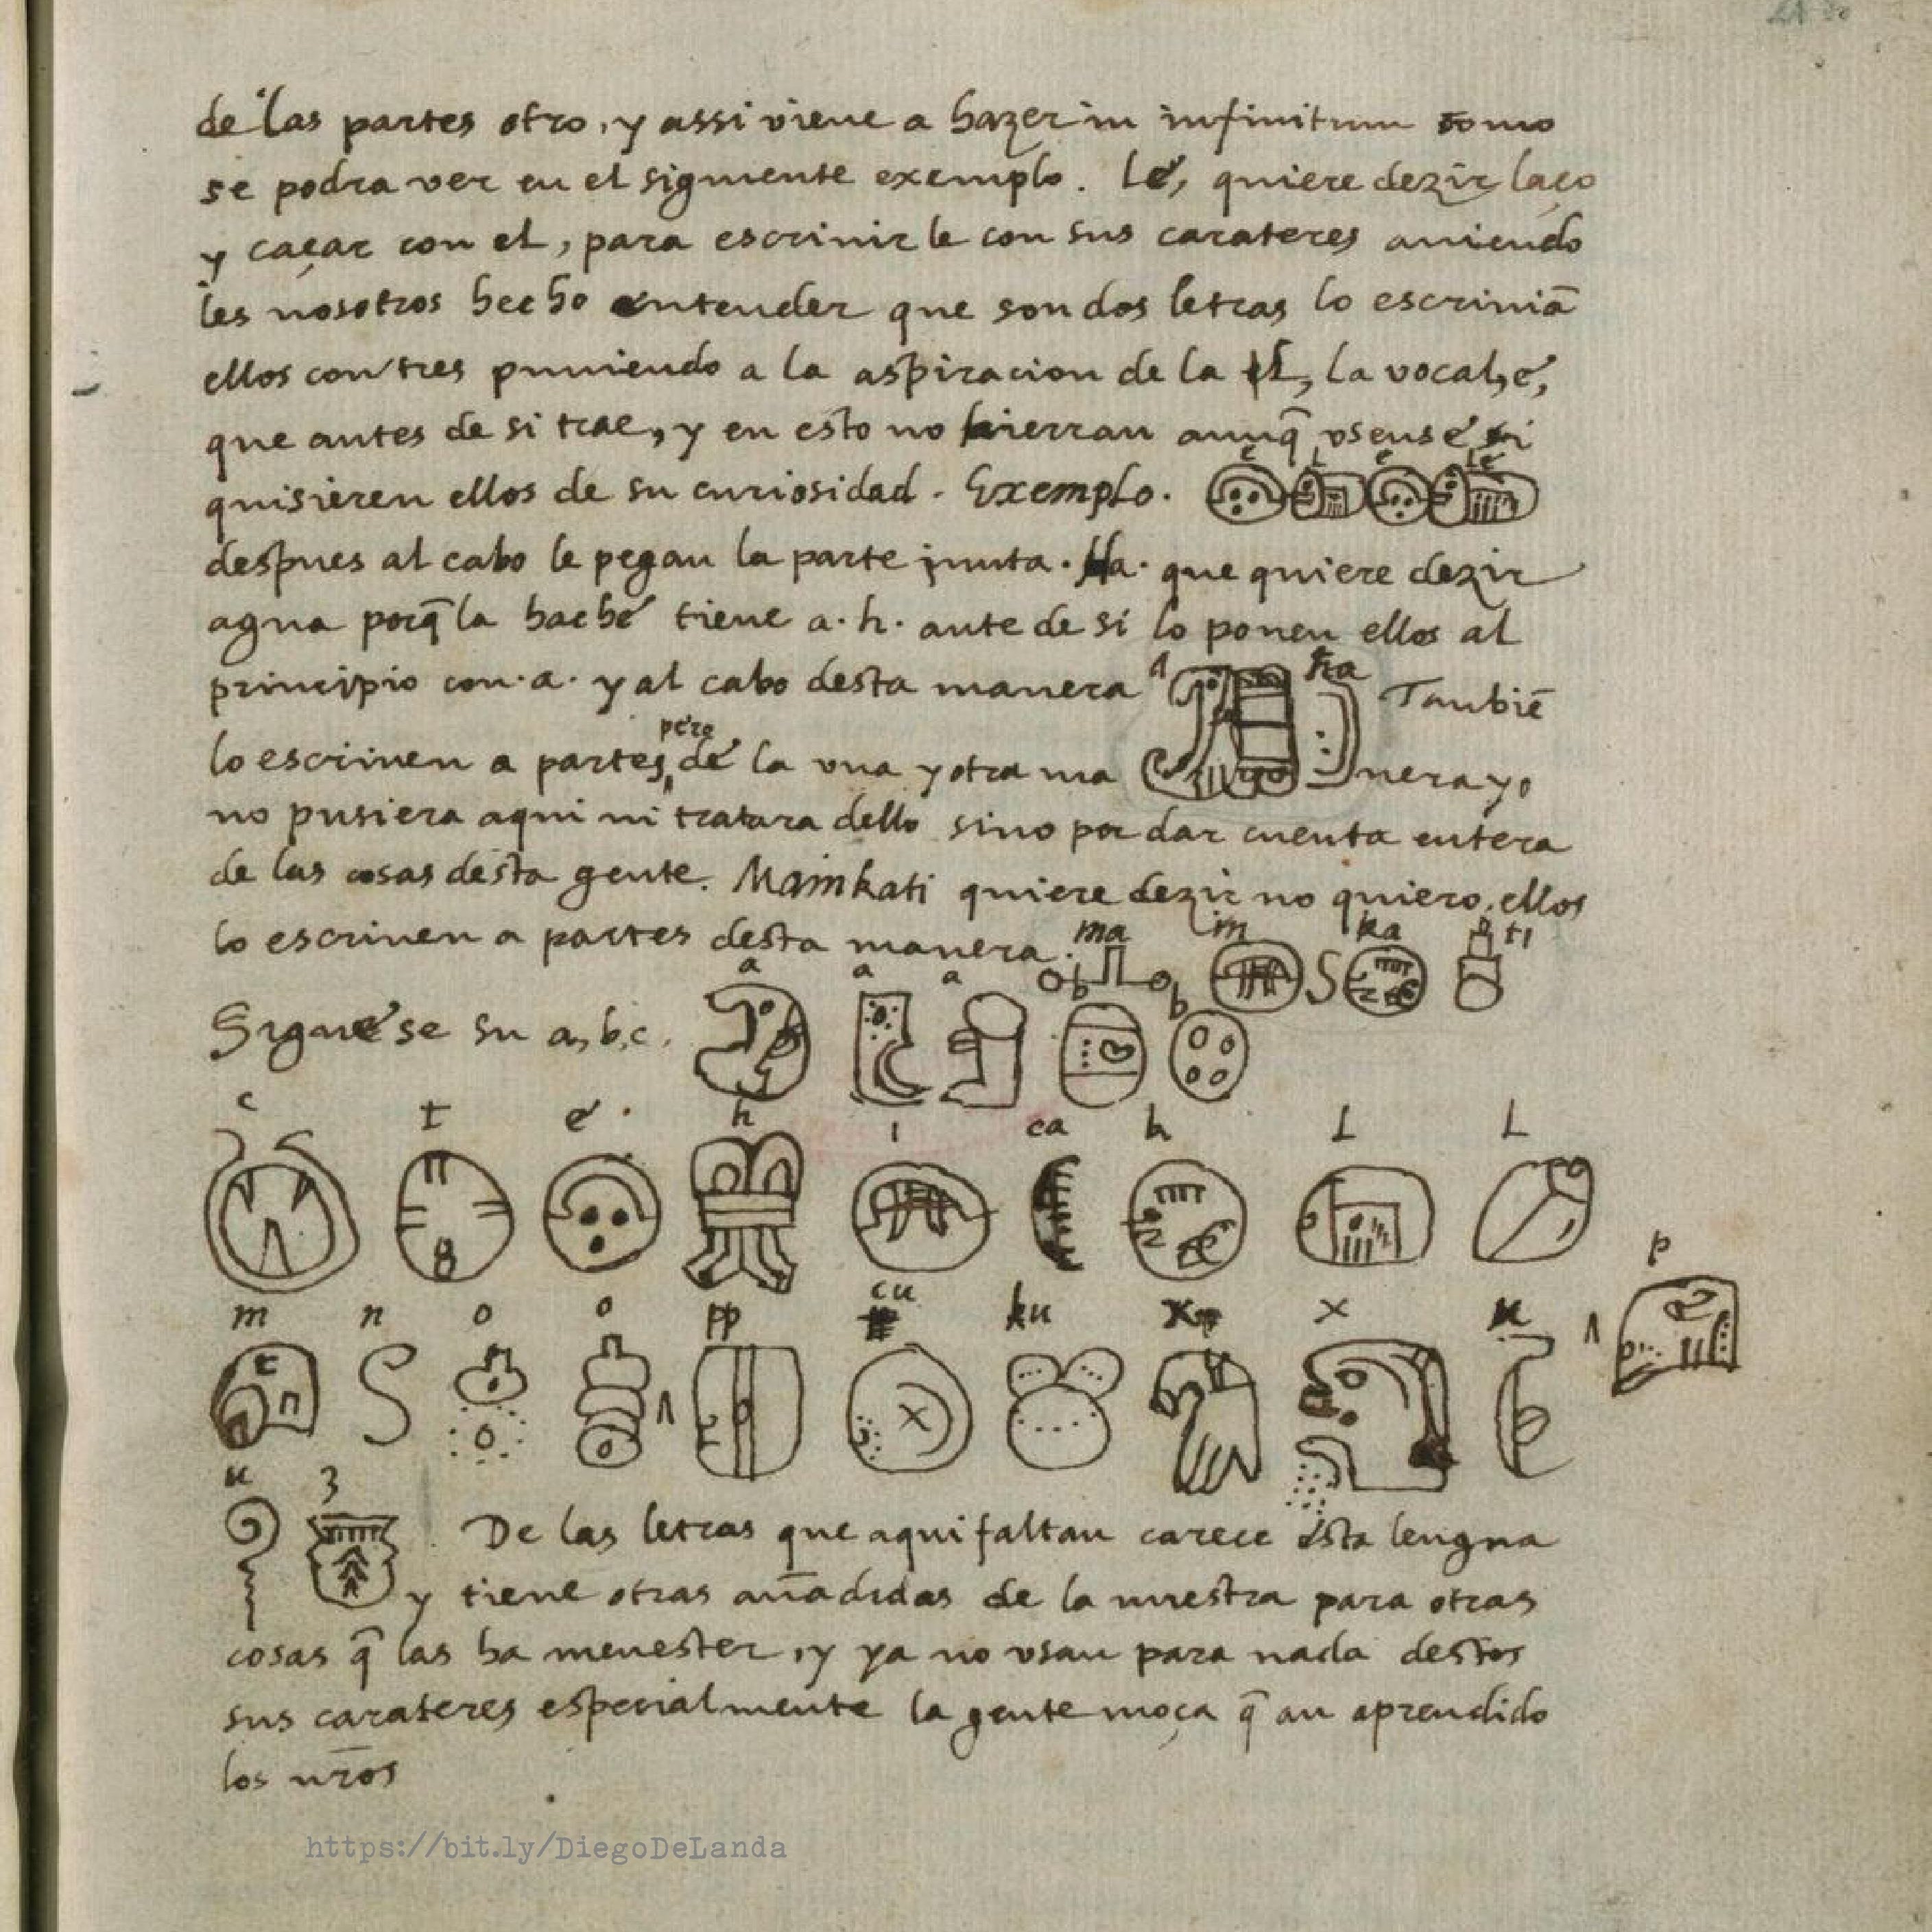 de las partes otro, y assi viene a hazer in infinitum como
se podra ver en el siguiente exemplo. Lé, quiere dezir laço
y caçar con el, para escrivirle con sus carateres aviendo
les nosotros hecho entender que son dos letras lo escriviã
ellos con tres puniendo a la aspiracion de la l, la vocal, é,
que antes de si trae, y en esto no hierran aunq̃ usense si
quisieren ellos de su curiosidad. Exemplo. e L e Lé
despues al cabo le pegan la parte junta. Ha. que quiere dezir
agua porq̃ la hache tiene a. h. ante de si lo ponen ellos al
principio con. a. y al cabo desta manera a ha Tanbiẽ
pero
lo escriven a partes, de la una y otra ma nera yo
no pusiera aqui ni tratara dello sino por dar cuenta entera
de las cosas desta gente. Mainkati quiere dezir no quiero, ellos
lo escriven a partes desta manera. ma in ka ti
Siguese su a, b, c. a a a b b
c t é h i ca k L L
m n o o pp cu ku x x u p
u z De las letras que aqui faltan carece esta lengua
y tiene otras añadidas de la nuestra para otras
cosas q̃ las ha menester, y ya no usan para nada destos
sus carateres especialmente la gente moça q̃ an aprendido
los nr̃os
https://bit.ly/DiegoDeLanda